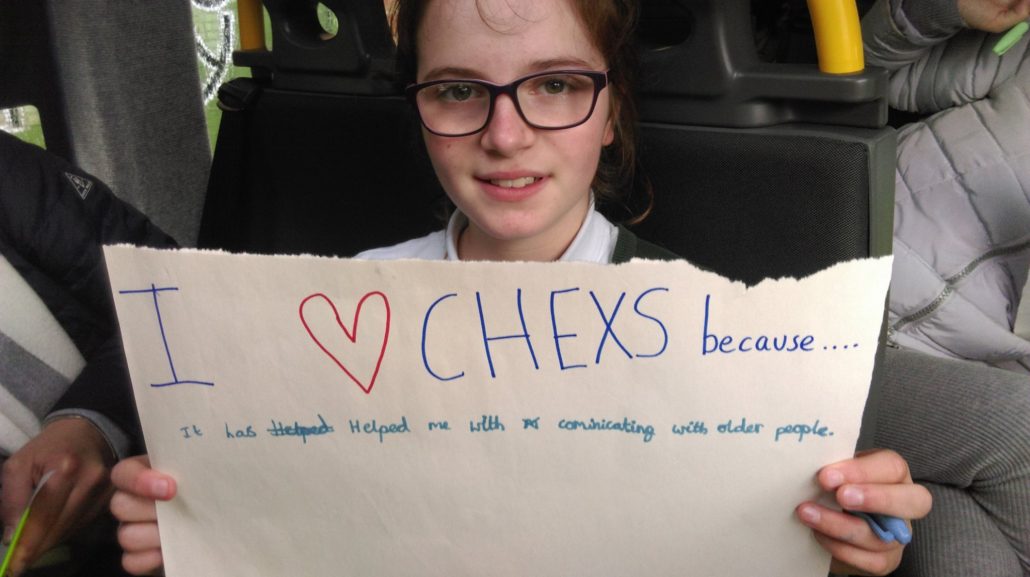 I ♥ CHEXS because....
It has Helped Helped me with cominicating with older people.